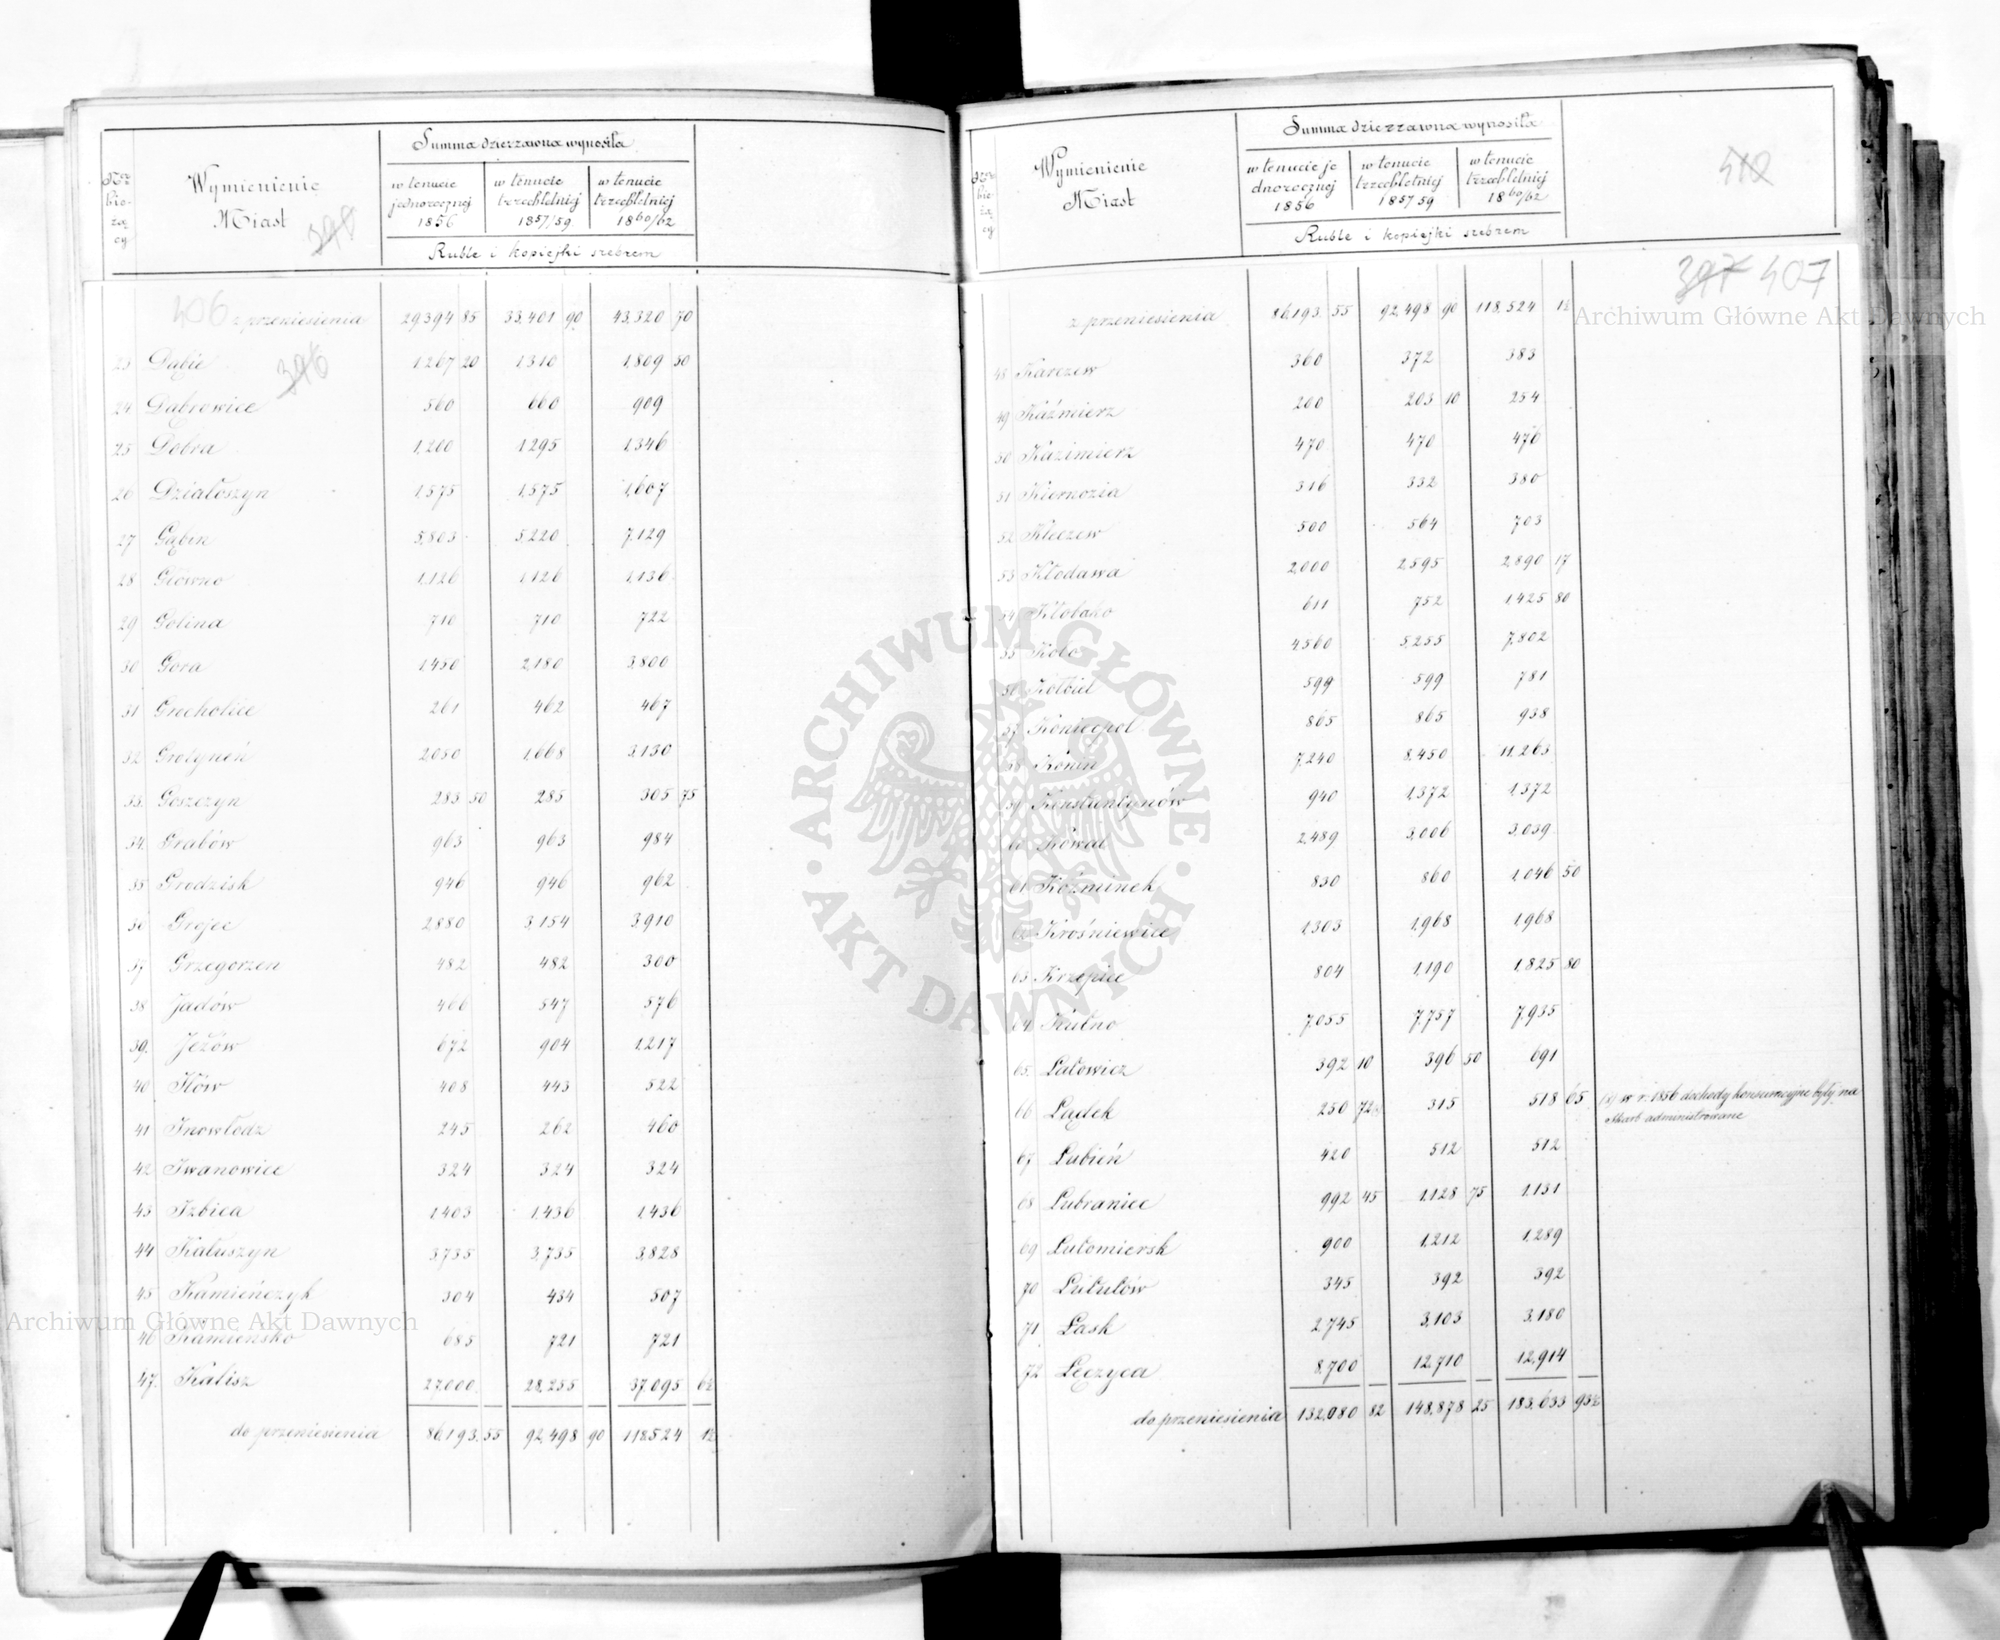 No bieżący
Wymienienie Miast
398
Summa dzierzawna wynosiła
w tenucie jednorocznej 1856
w tenucie trzechletniej 1857/59
w tenucie trzechletniej 1860/62
Ruble i kopiejki srebrem
406 z przeniesienia 29394 85 33,401 90 43,320 70
396
23 Dąbie 1,267 20 1310 1,809 50
24 Dąbrowice 560 660 909
25 Dobra 1,200 1295 1,346
26 Działoszyn 1,575 1,575 1,607
27 Gąbin 5,803 5,220 7,129
28 Główno 1,126 1,126 1,136
29 Golina 710 710 722
30 Gora 1,450 2,180 3,800
31 Grocholice 261 462 467
32 2,050 1,668 3,130
33. Goszczyn 283 50 285 305 75
34. Grabów 963 963 984
35 Grodzisk 946 946 962
36 Grojec 2880 3,154 3,910
37 Grzegorzew 482 482 500
38 Jadów 466 547 576
39. Jeżów 672 904 1,217
40 Iłów 408 443 522
41 Inowłodz 245 262 460
42 Iwanowice 324 324 324
43 Izbica 1,403 1,436 1,436
44 Kałuszyn 3,735 3,735 3,828
45 Kamieńczyk 304 434 507
46 Kamieńsko 685 721 721
47. Kalisz 27,000 28,255 37,095 6½
do przeniesienia 86,193 55 92,498 90 118,524 1½
No bieżący
Wymienienie Miast
Summa dzierzawna wynosiła
w tenucie jednorocznej 1856
w tenucie trzechletniej 1857/59
w tenucie trzechletniej 1860/62
Ruble i kopiejki srebrem
412
397 407
z przeniesienia 86,193 55 92,498 90 118,524 1½
48 Karczew 360 372 383
49 Kaźmierz 200 203 10 254
50 Kazimierz 470 470 476
51 Kiernozia 316 332 380
52 Kleczew 500 564 703
53 Kłodawa 2,000 2,595 2,890 17
54 Kłobuko 611 752 1,425 80
55 Koło 4,560 5,255 7,802
56 Kołbiel 599 599 781
57 Koniecpol 865 865 938
58 Konin 7,240 8,450 11,263
59 Konstantynów 940 1,372 1,372
60 Kowal 2,489 3,006 3,039
61 Koźminek 830 860 1,046 50
62 Krośniewice 1,303 1,968 1,968
63 Krzepice 804 1,190 1,825 80
64 Kutno 7,055 7,757 7,935
65. Latowicz 392 10 396 50 691
66 Lądek 250 72½ 315 518 65 w r. 1856 dochody konsumcyjne były na
Skarb administrowane
67 Lubień 420 512 512
68 Lubraniec 992 45 1,128 75 1,131
69 Lutomiersk 900 1,212 1,289
70 Lututów 345 392 392
71 Łask 2,745 3,103 3,180
72 Łęczyca 8,700 12,710 12,914
do przeniesienia 132,080 82 148,878 25 183,633 93½
Archiwum Główne Akt Dawnych
ARCHIWUM GŁÓWNE · AKT DAWNYCH ·
Archiwum Główne Akt Dawnych